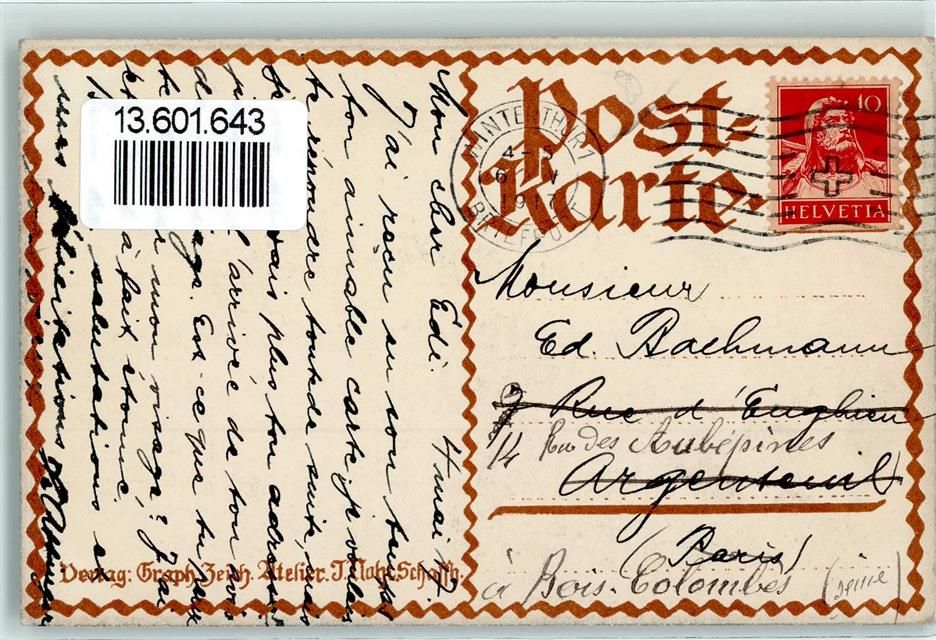 13.601.643
Post-
Karte
WINTERTHUR 1
BRIEFPO
1917
10
HELVETIA
Monsieur
Ed. Bachmann
7 Rue d'Enghien
14 Rue des Aubépines
Argenteuil
(Paris)
à Bois-Colombes (Seine)
4 mai 17.
Mon cher Edi.
J'ai reçu en son temps
ton aimable carte je voulus
te répondre tout de suite, mais
je vais plus ton adresse
l'arrivée de ton
Est-ce que tu
mon visage? J'ai
à fait étonné,
salutations
félicitations
Verlag: Graph. Zeich. Atelier. J. Nohl Schaffh.